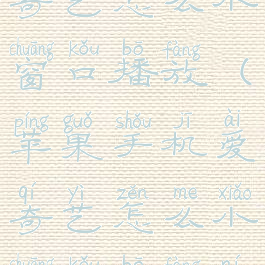 奇艺怎么小
chuāng kǒu bō fàng
窗口播放（
píng guǒ shǒu jī ài
苹果手机爱
qí yì zěn me xiǎo
奇艺怎么小